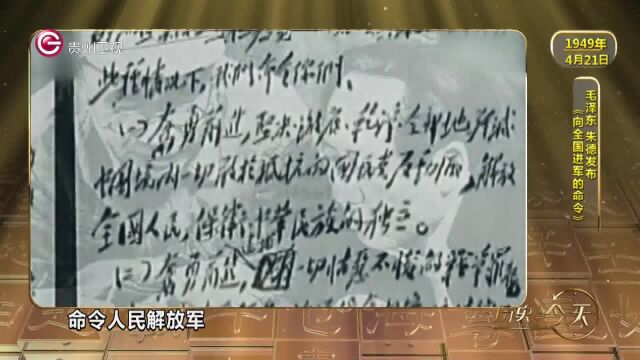 贵州卫视
1949年
4月21日
毛泽东 朱德发布
《向全国进军的命令》
此种情况下，我们命令你们：
(一)奋勇前进，坚决、彻底、干净、全部地歼灭
中国境内一切敢于抵抗的国民党反动派，解放
全国人民，保卫中华民族的独立。
(二)奋勇前进，逮捕一切怙恶不悛的战争罪犯
命令人民解放军
今天